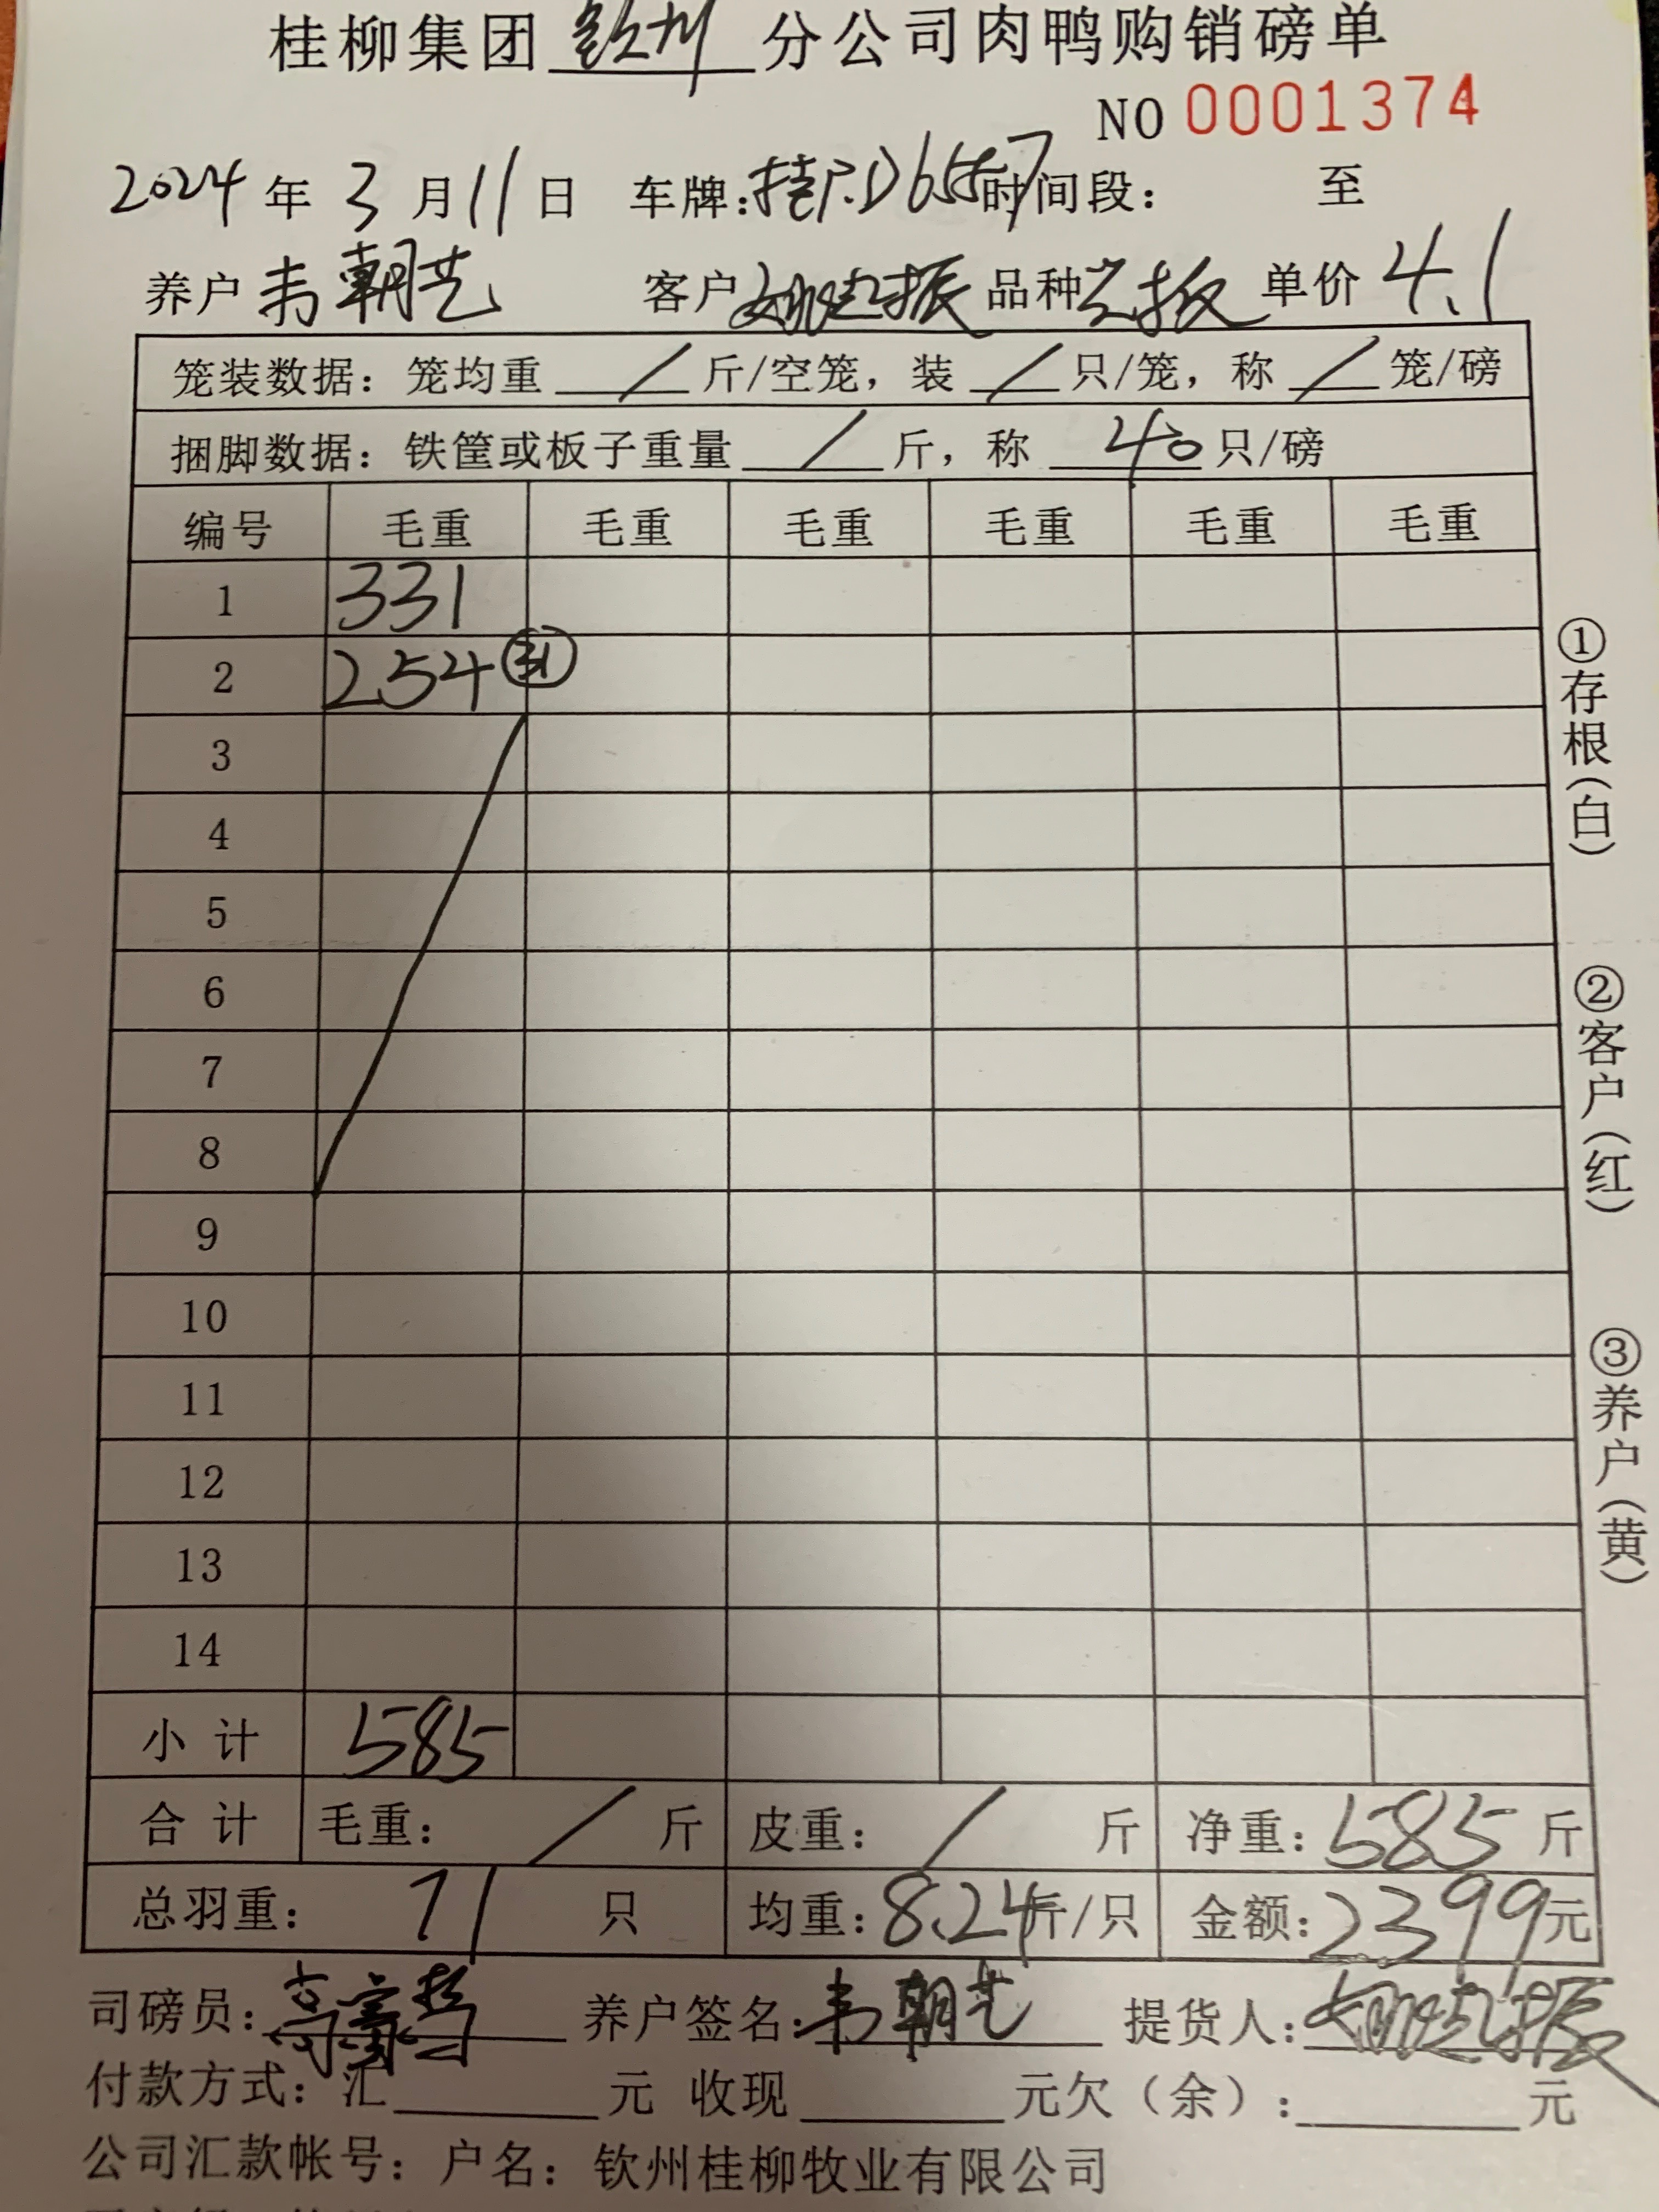 桂柳集团 钦州 分公司肉鸭购销磅单
NO 0001374
2024 年 3 月 11 日 车牌: D6557 时间段: 至
养户 韦朝艺 客户 品种 单价 4.1
笼装数据: 笼均重 / 斤/空笼, 装 / 只/笼, 称 / 笼/磅
捆脚数据: 铁筐或板子重量 / 斤, 称 40 只/磅
编号 毛重 毛重 毛重 毛重 毛重 毛重
1 331
2 254 31
3
4
5
6
7
8
9
10
11
12
13
14
小计 585
合计 毛重: / 斤 皮重: / 斤 净重: 585 斤
总羽重: 71 只 均重: 8.24 斤/只 金额: 2399 元
司磅员: 养户签名: 韦朝艺 提货人:
付款方式: 汇 元 收现 元欠(余): 元
公司汇款帐号: 户名: 钦州桂柳牧业有限公司
①存根(白)
②客户(红)
③养户(黄)